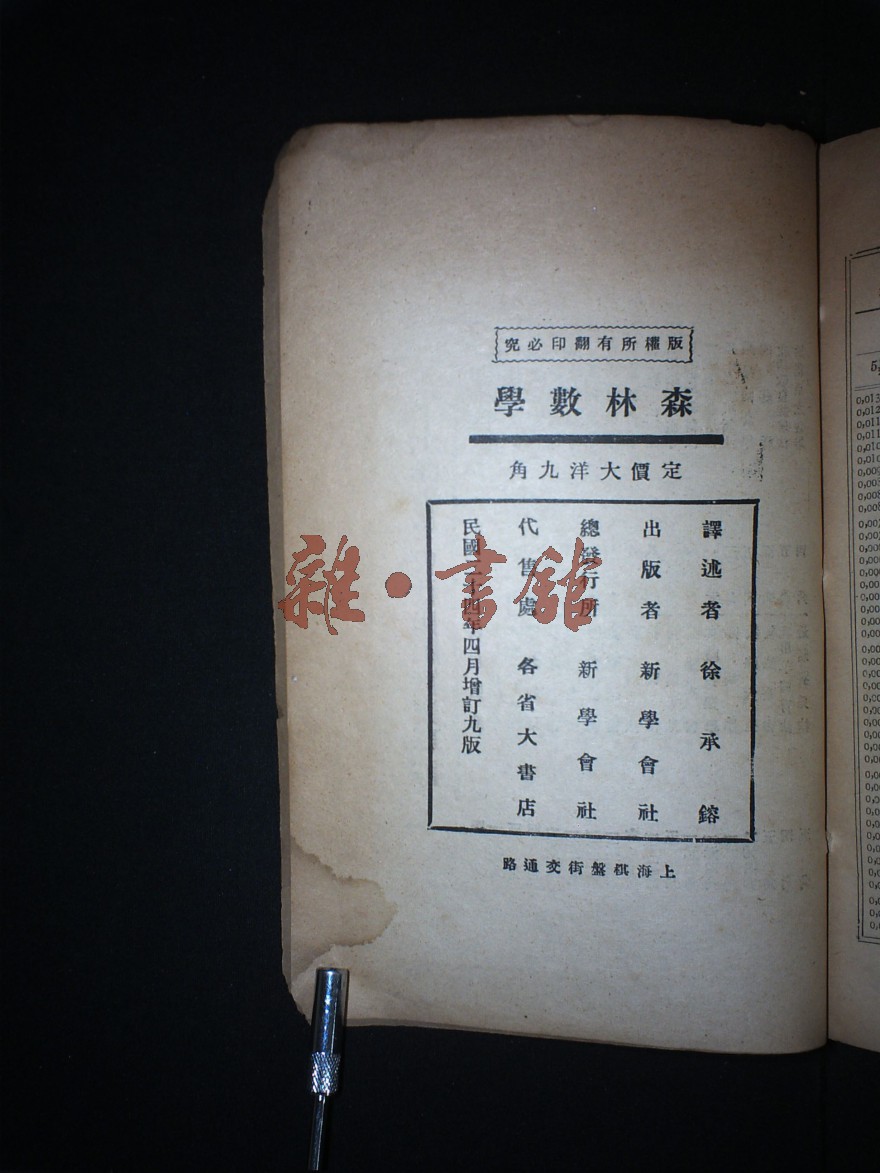 版權所有翻印必究
森林數學
定價大洋九角
譯述者 徐承鎔
出版者 新學會社
總發行所 新學會社
代售處 各省大書店
民國二十四年四月增訂九版
上海棋盤街交通路
雜·書館